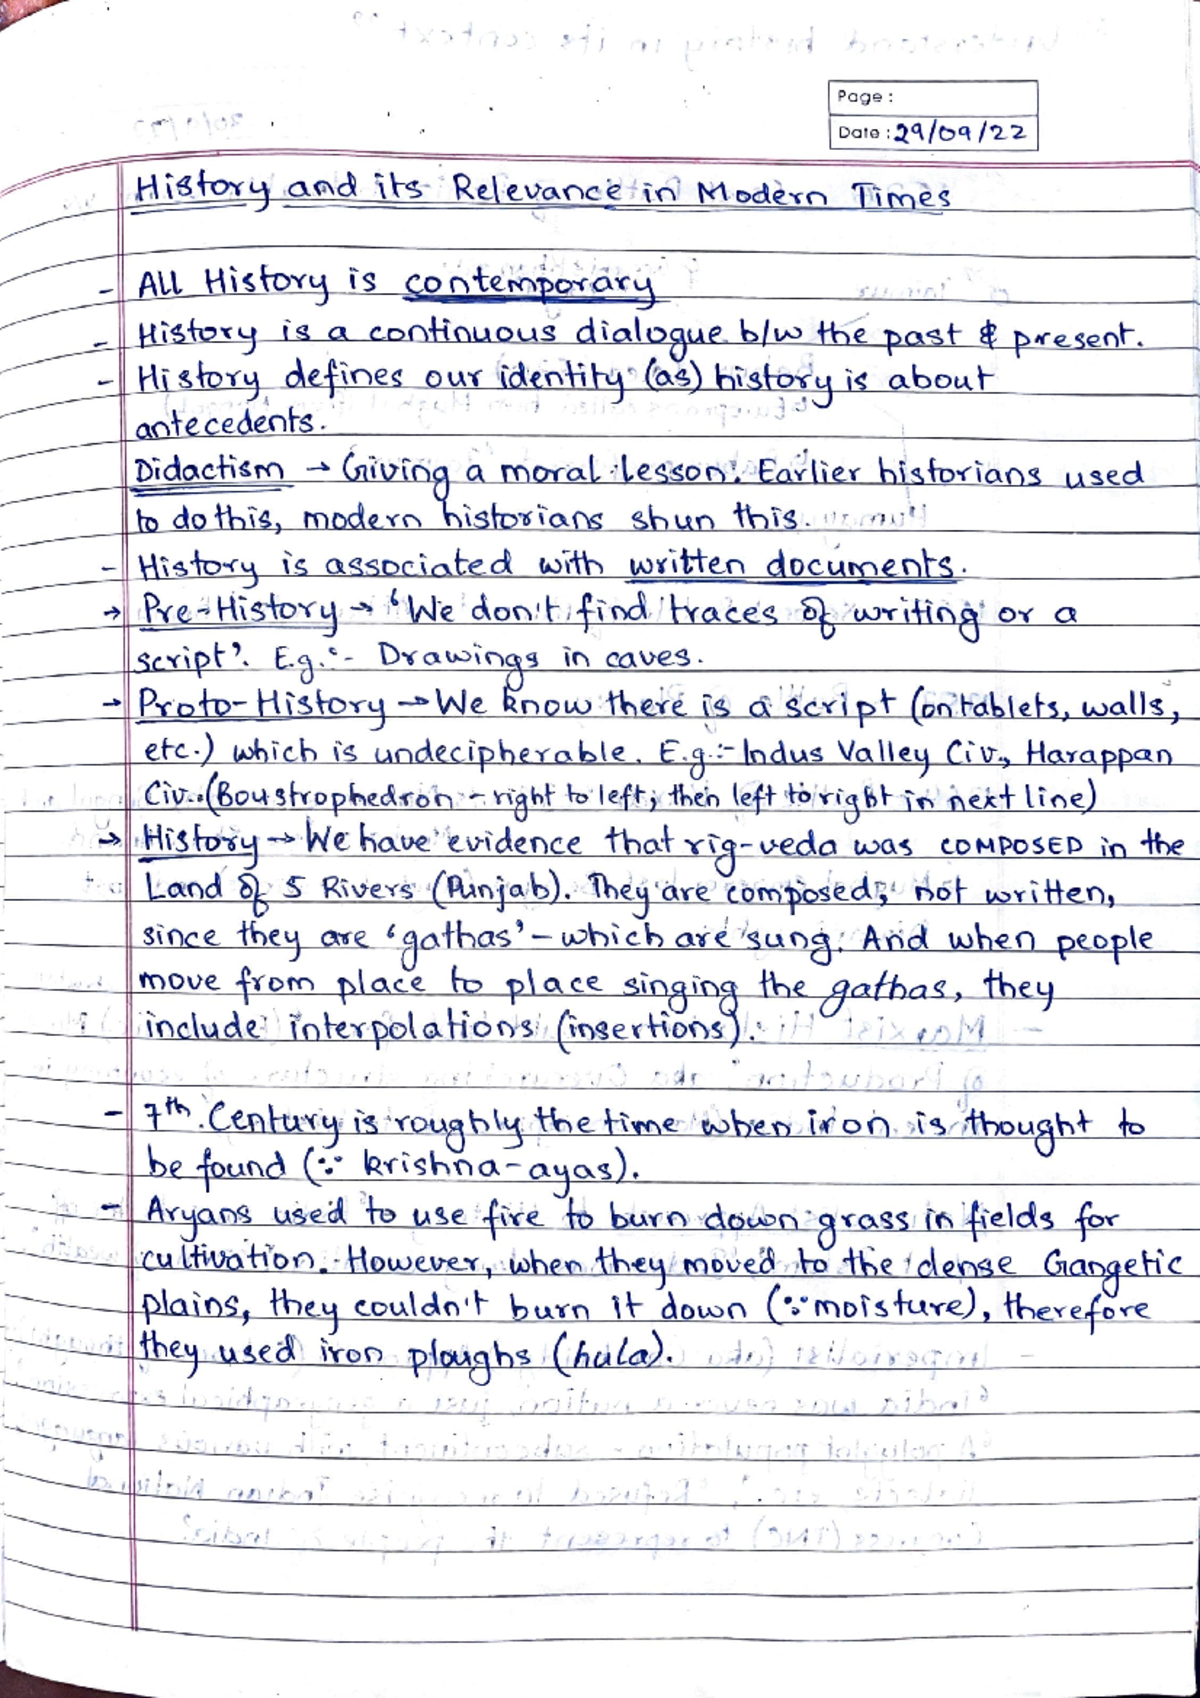 Page :
Date : 29/09/22
History and its Relevance in Modern Times
- All History is contemporary
- History is a continuous dialogue b/w the past & present.
- History defines our identity (as) history is about
antecedents.
Didactism → Giving a moral lesson. Earlier historians used
to do this, modern historians shun this.
- History is associated with written documents.
→ Pre-History → 'We don't find traces of writing or a
script'. E.g.:- Drawings in caves.
→ Proto-History → We know there is a script (on tablets, walls,
etc.) which is undecipherable. E.g.:- Indus Valley Civ., Harappan
Civ.. (Boustrophedron - right to left; then left to right in next line)
→ History → We have evidence that rig-veda was COMPOSED in the
Land of 5 Rivers (Punjab). They are composed, not written,
since they are 'gathas' - which are sung. And when people
move from place to place singing the gathas, they
include interpolations (insertions).
- 7th Century is roughly the time when iron is thought to
be found (∵ krishna-ayas).
- Aryans used to use fire to burn down grass in fields for
cultivation. However, when they moved to the dense Gangetic
plains, they couldn't burn it down (∵ moisture), therefore
they used iron ploughs (hula).